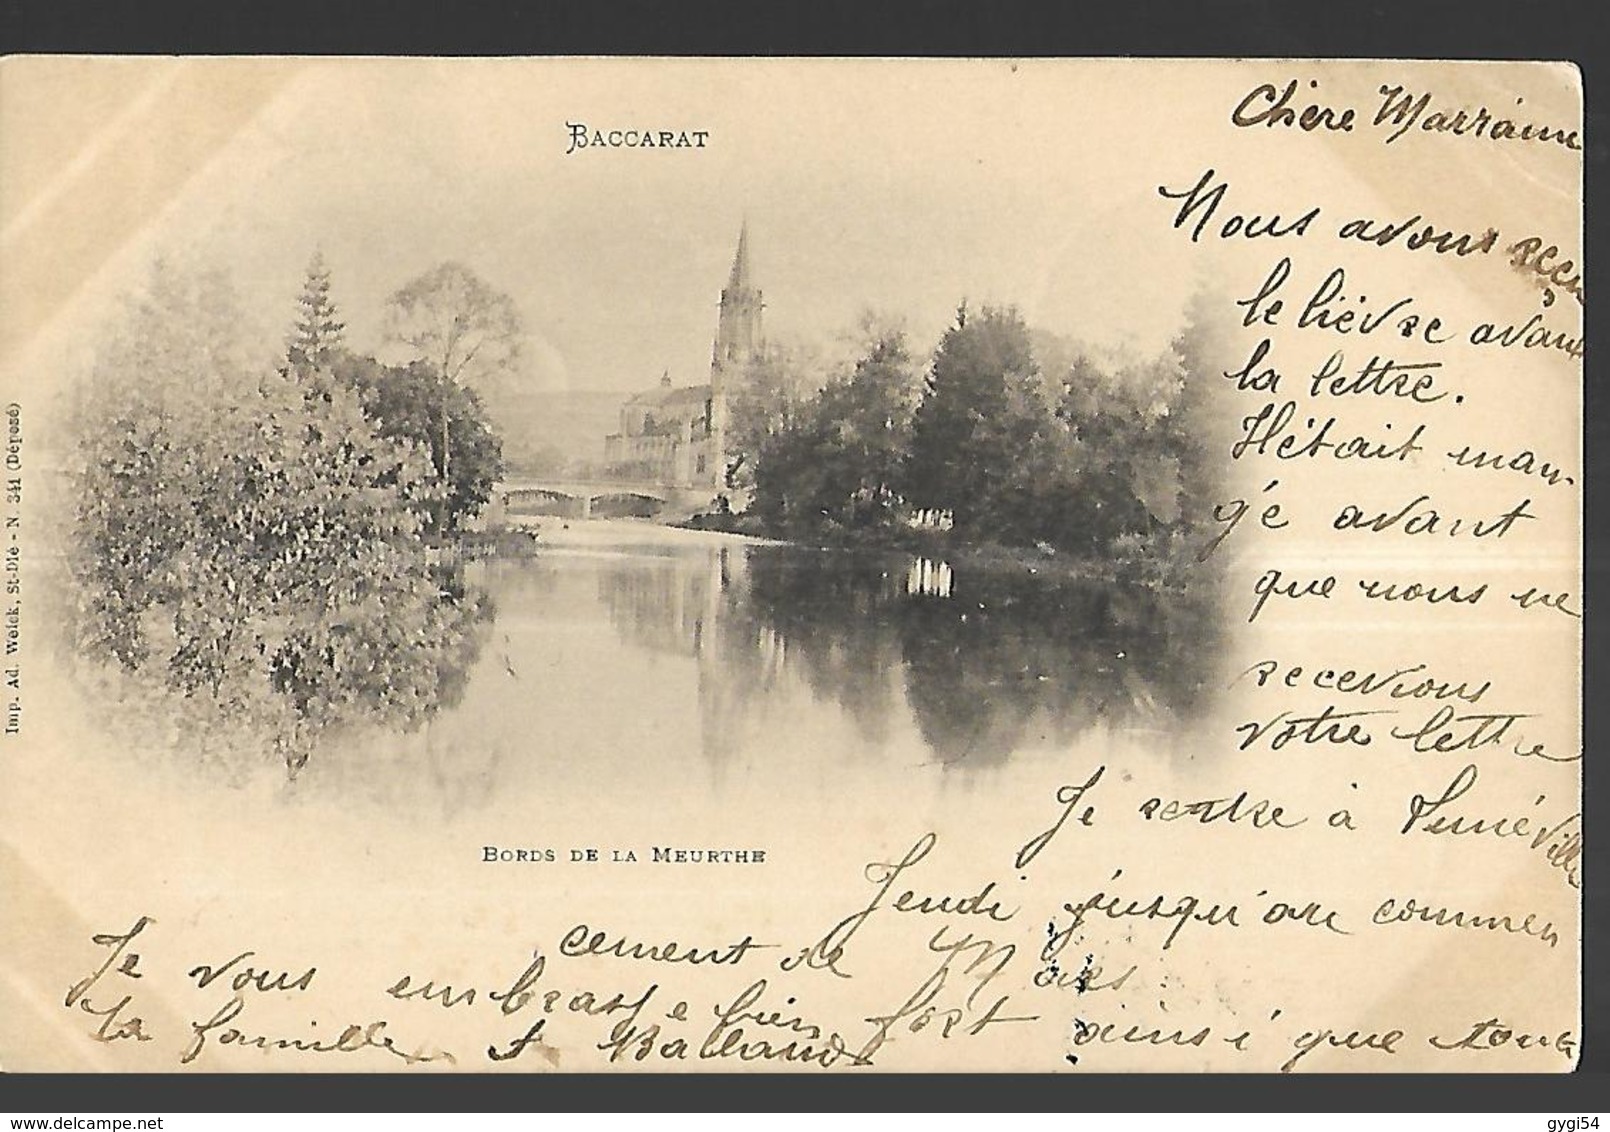 BACCARAT
Chère Marraine
Nous avons reçu
le lièvre avant
la lettre.
Il était man-
gé avant
que nous ne
recevions
votre lettre
Je rentre à Lunéville
Jeudi jusqu'au commen
cement de Mars
Je vous embrasse bien fort ainsi que toute
la famille
BORDS DE LA MEURTHE
Imp. Ad. Weick, St-Dié - N. 341 (Déposé)
gygi54